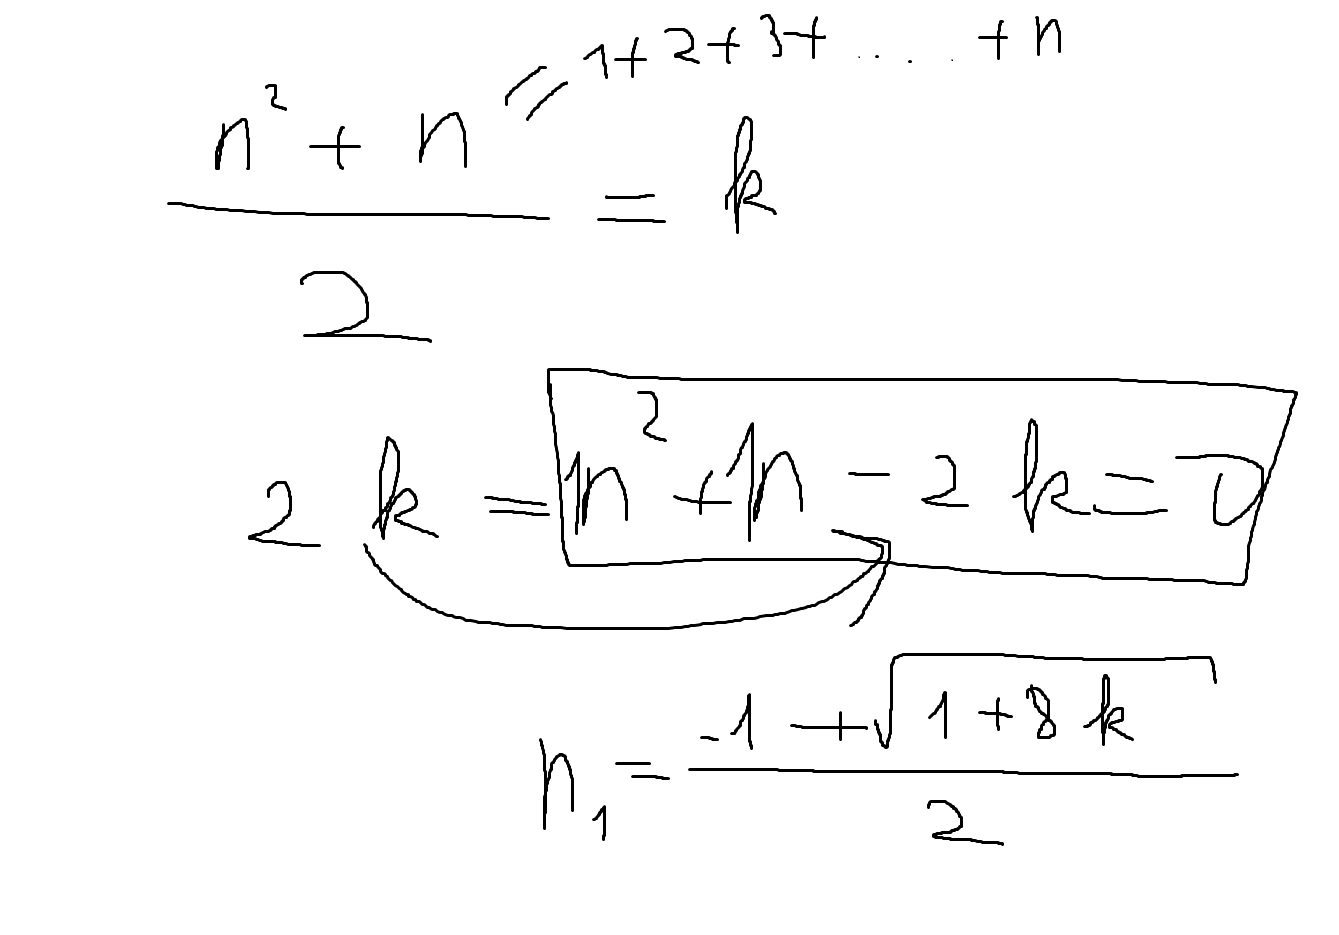 = 1+2+3+ .... +n
n² + n
/ 2 = k
2k = n² + n - 2k = 0
n₁ = (-1 + √(1+8k)) / 2